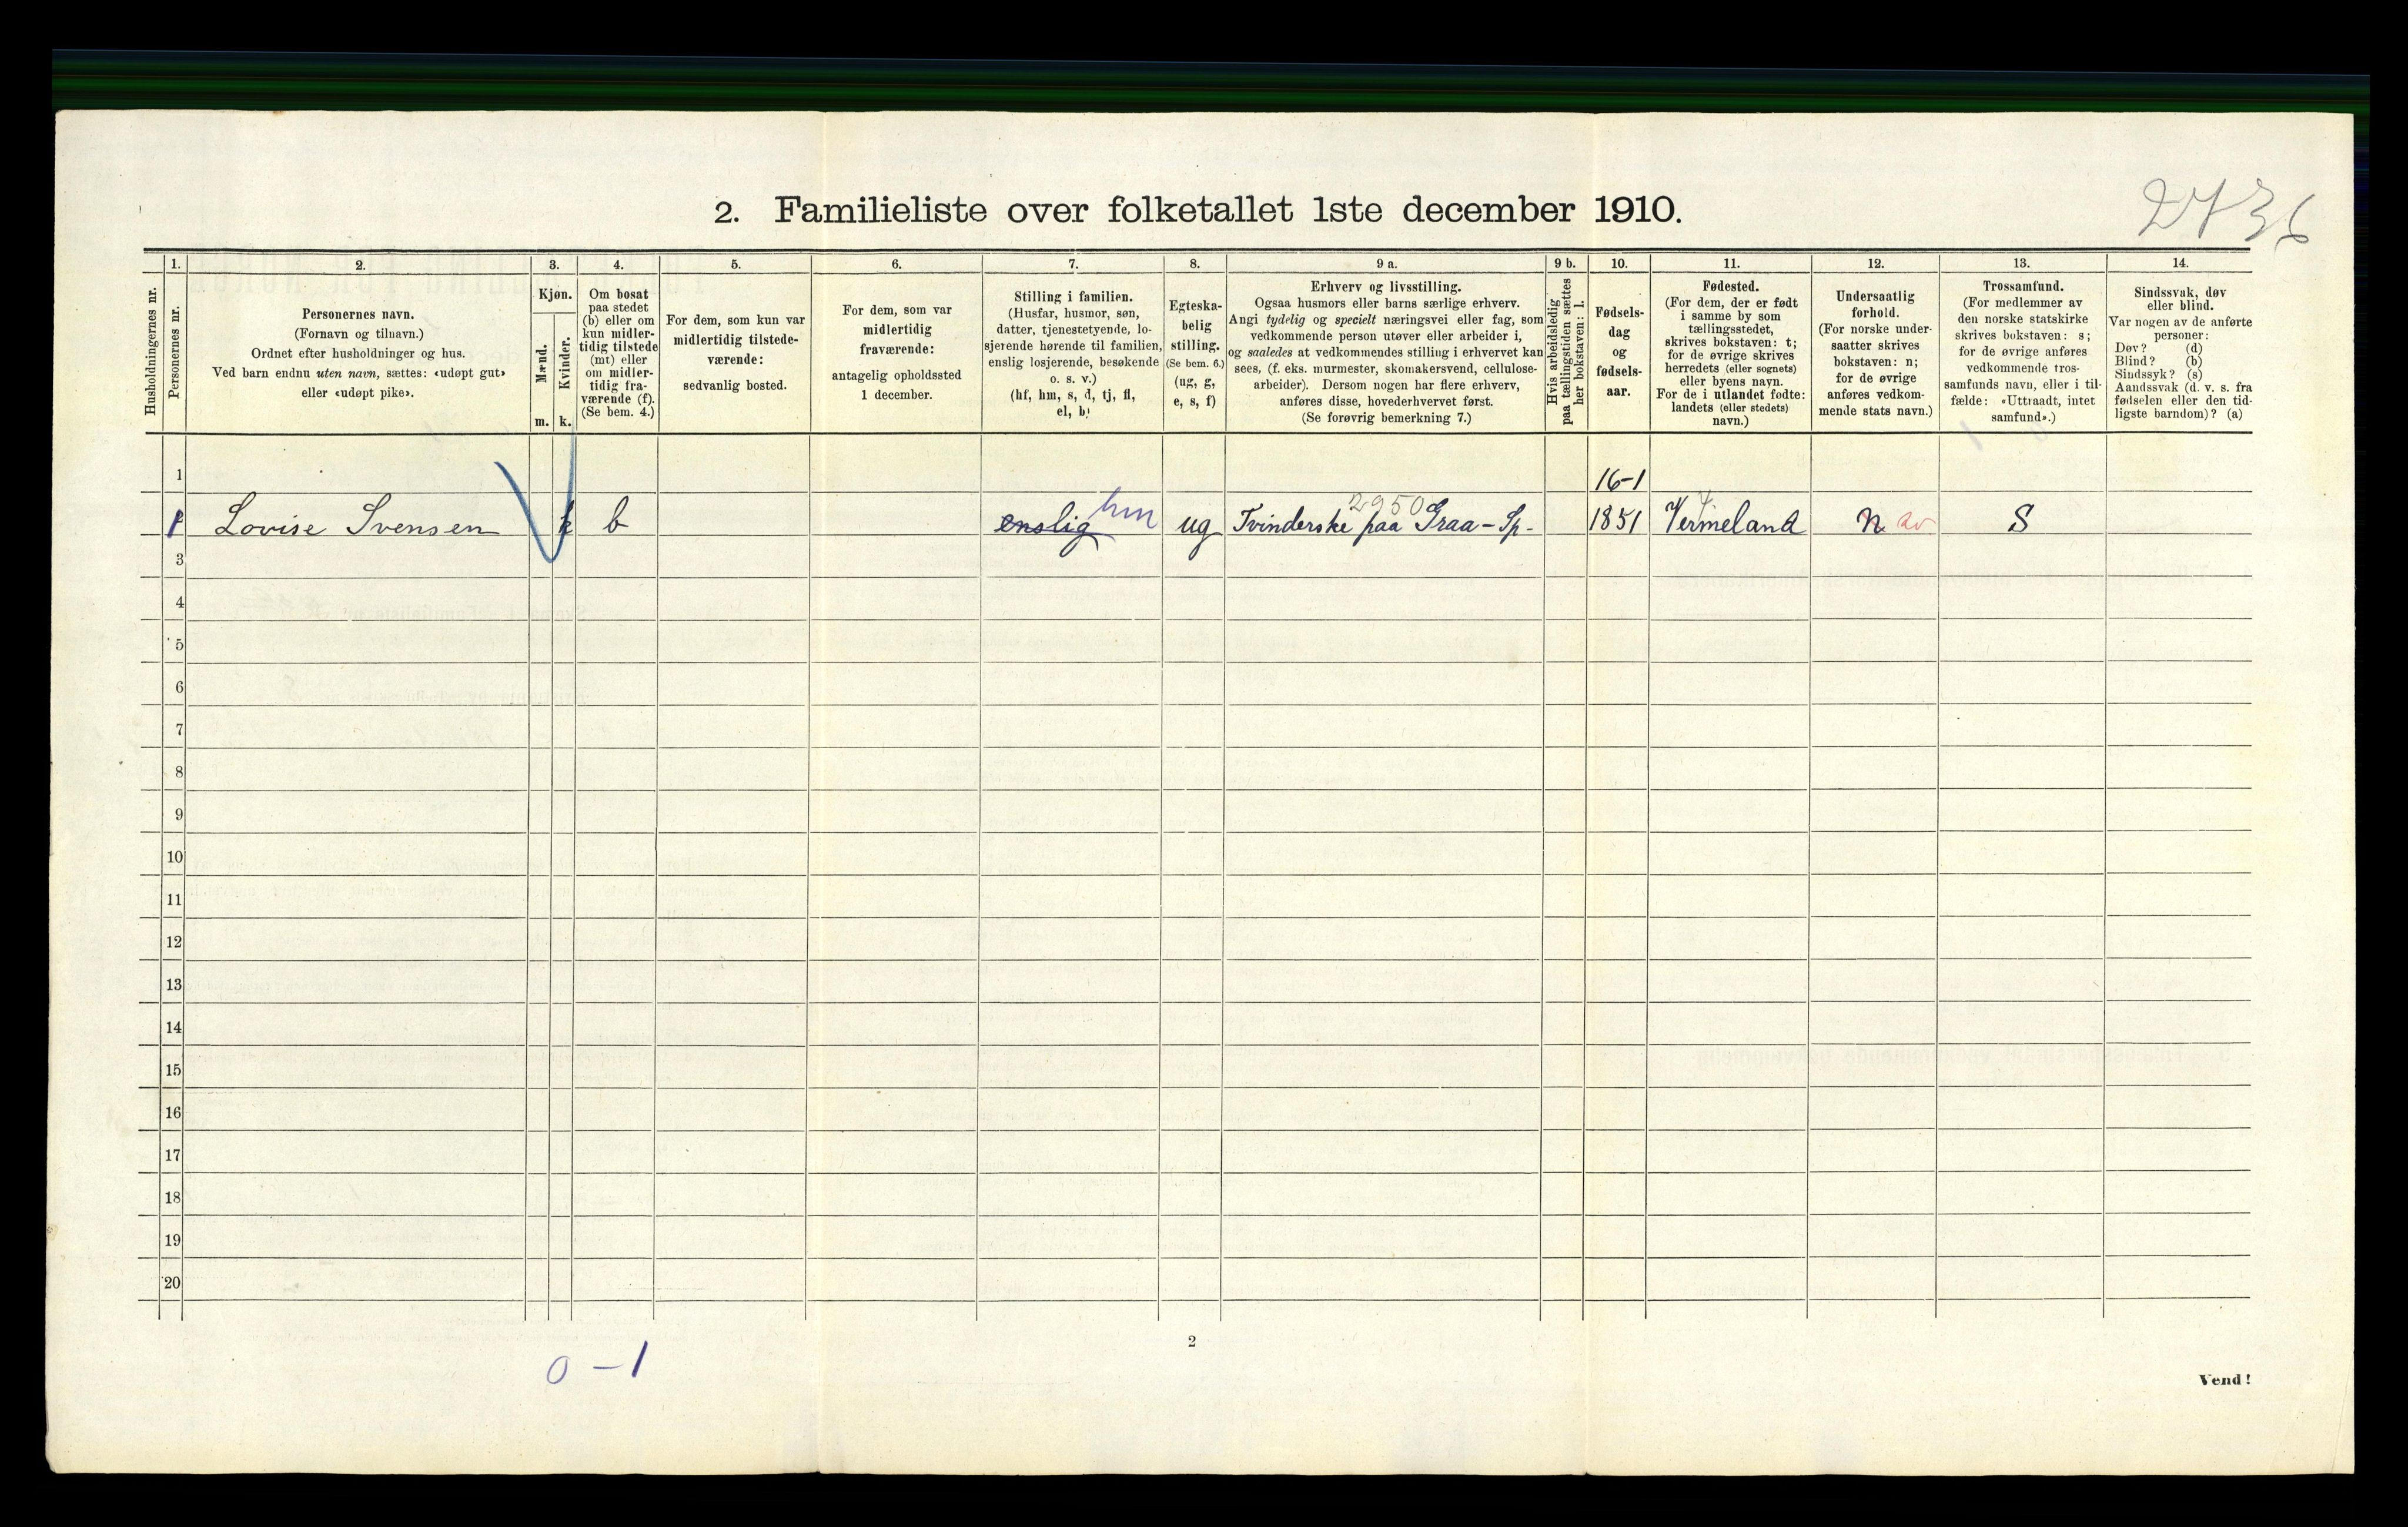 2736
2. Familieliste over folketallet 1ste december 1910.
Husholdningernes nr.
1.
Personernes nr.
2.
Personernes navn.
(Fornavn og tilnavn.)
Ordnet efter husholdninger og hus.
Ved barn endnu uten navn, sættes: «udøpt gut»
eller «udøpt pike».
3.
Kjøn.
Mænd.
m.
Kvinder.
k.
4.
Om bosat
paa stedet
(b) eller om
kun midler-
tidig tilstede
(mt) eller
om midler-
tidig fra-
værende (f).
(Se bem. 4.)
5.
For dem, som kun var
midlertidig tilstede-
værende:
sedvanlig bosted.
6.
For dem, som var
midlertidig
fraværende:
antagelig opholdssted
1 december.
7.
Stilling i familien.
(Husfar, husmor, søn,
datter, tjenestetyende, lo-
sjerende hørende til familien,
enslig losjerende, besøkende
o. s. v.)
(hf, hm, s, d, tj, fl,
el, b)
8.
Egteska-
belig
stilling.
(Se bem. 6.)
(ug, g,
e, s, f)
9 a.
Erhverv og livsstilling.
Ogsaa husmors eller barns særlige erhverv.
Angi tydelig og specielt næringsvei eller fag, som
vedkommende person utøver eller arbeider i,
og saaledes at vedkommendes stilling i erhvervet kan
sees, (f. eks. murmester, skomakersvend, cellulose-
arbeider). Dersom nogen har flere erhverv,
anføres disse, hovederhvervet først.
(Se forøvrig bemerkning 7.)
9 b.
Hvis arbeidsledig
paa tællingstiden sættes
her bokstaven: l.
10.
Fødsels-
dag
og
fødsels-
aar.
11.
Fødested.
(For dem, der er født
i samme by som
tællingsstedet,
skrives bokstaven: t;
for de øvrige skrives
herredets (eller sognets)
eller byens navn.
For de i utlandet fødte:
landets (eller stedets)
navn.)
12.
Undersaatlig
forhold.
(For norske under-
saatter skrives
bokstaven: n;
for de øvrige
anføres vedkom-
mende stats navn.)
13.
Trossamfund.
(For medlemmer av
den norske statskirke
skrives bokstaven: s;
for de øvrige anføres
vedkommende tros-
samfunds navn, eller i til-
fælde: «Uttraadt, intet
samfund».)
14.
Sindssvak, døv
eller blind.
Var nogen av de anførte
personer:
Døv? (d)
Blind? (b)
Sindssyk? (s)
Aandssvak (d. v. s. fra
fødselen eller den tid-
ligste barndom)? (a)
1 16-1
1 Lovise Svensen k b enslig hm ug 2950 Tvinderske paa Graa-Sp- 1851 Vermeland n S
3
4
5
6
7
8
9
10
11
12
13
14
15
16
17
18
19
20
2
0 - 1
Vend!